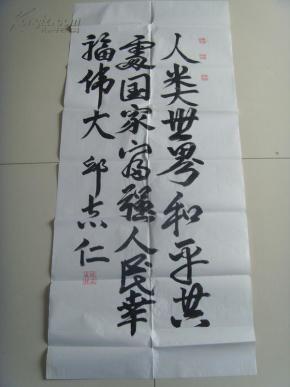 人类世界和平共
处国家富强人民幸
福伟大 邱志仁